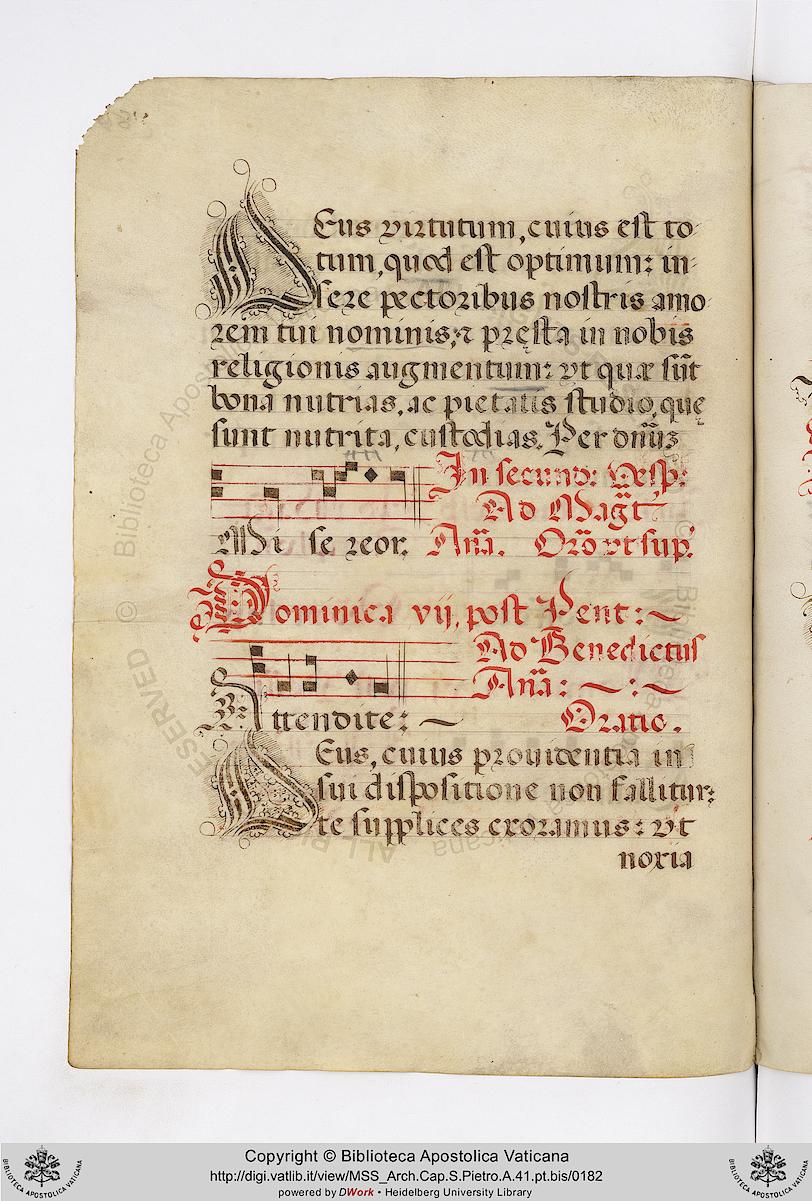 Deus virtutum, cuius est to-
tum, quod est optimum: in-
sere pectoribus nostris amo
rem tui nominis, ⁊ pręsta in nobis
religionis augmentum: vt quæ sūt
bona nutrias, ac pietatis studio, quę
sunt nutrita, custodias. Per dn̄um:
In secund: Vesp:
Ad Mag̃t
Mi se reor. An̄a. Orō vt sup.
Dominica vij. post Pent: ~
Ad Benedictus
An̄a: ~ : ~
Attendite: ~ Oratio.
Deus, cuius prouidentia in
sui dispositione non fallitur:
te supplices exoramus: vt
noxia
© Biblioteca Apostolica Vaticana
ALL RIGHTS RESERVED
Copyright © Biblioteca Apostolica Vaticana
http://digi.vatlib.it/view/MSS_Arch.Cap.S.Pietro.A.41.pt.bis/0182
powered by DWork • Heidelberg University Library
BIBLIOTECA APOSTOLICA VATICANA
BIBLIOTECA APOSTOLICA VATICANA